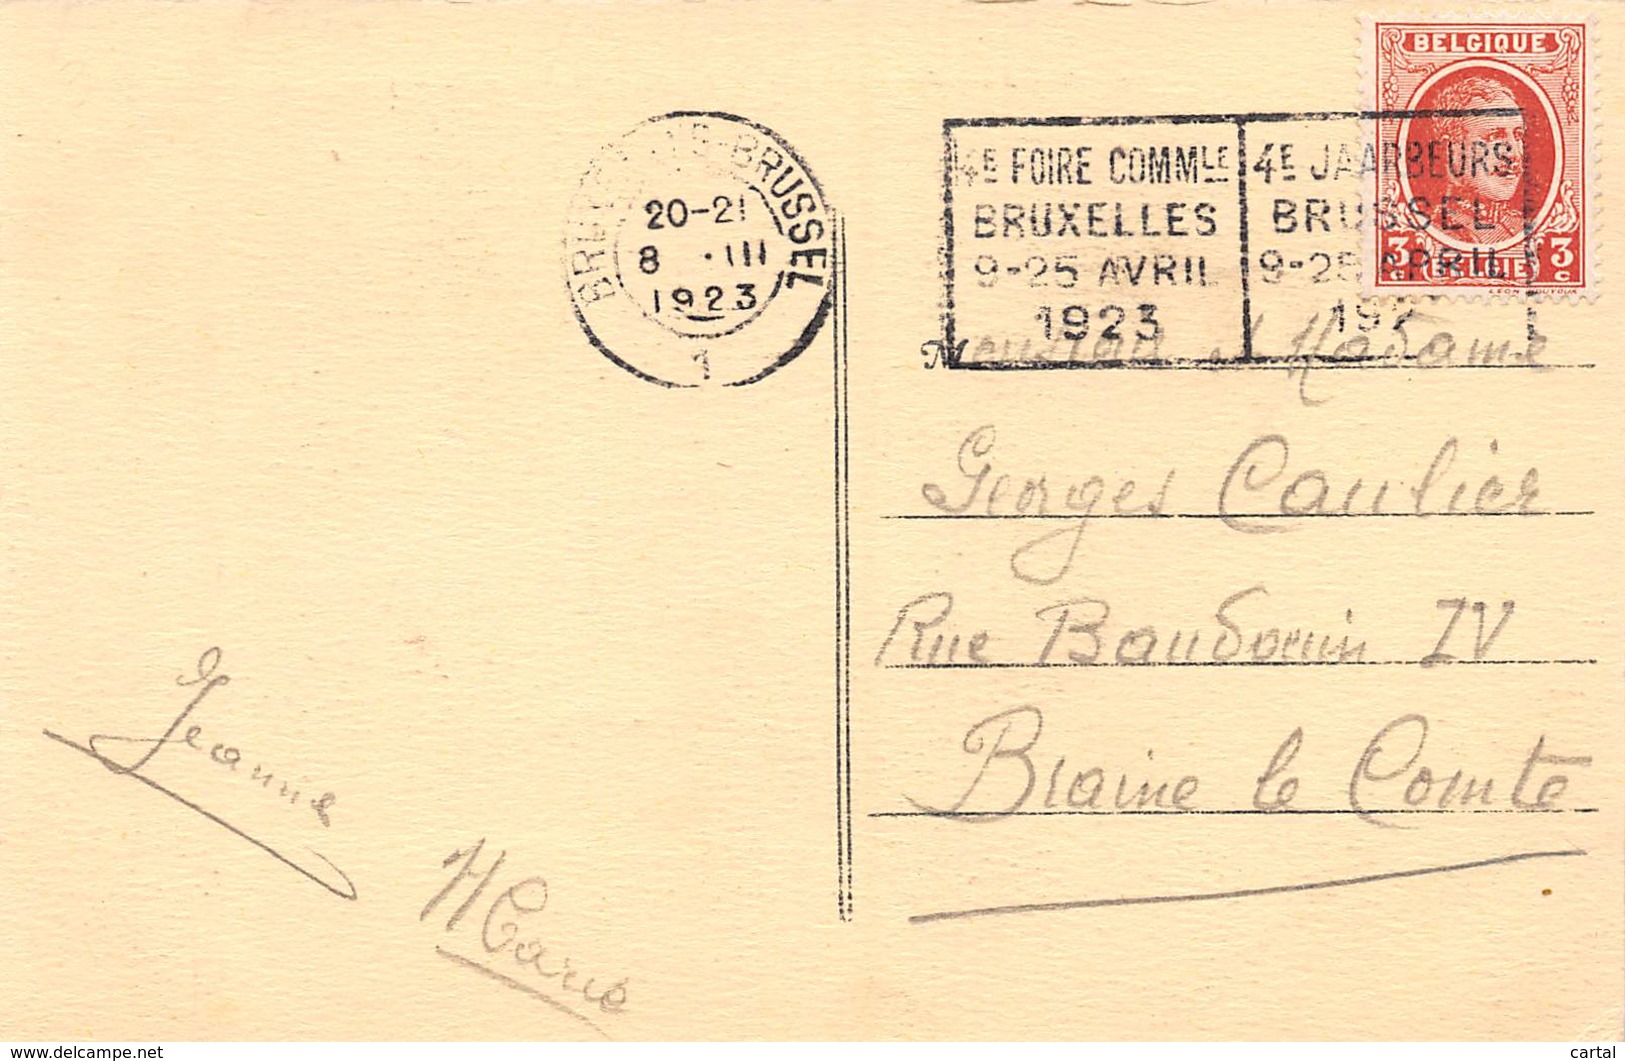 BELGIQUE
3c 3c
BELGIE
BRUSSEL
20-21
8 .III
1923
1
4E FOIRE COMMLE
BRUXELLES
9-25 AVRIL
1923
4E JAARBEURS
BRUSSEL
9-25 APRIL
Madame
Georges Caulier
Rue Baudouin IV
Braine le Comte
Jeanne
delcampe.net
cartal